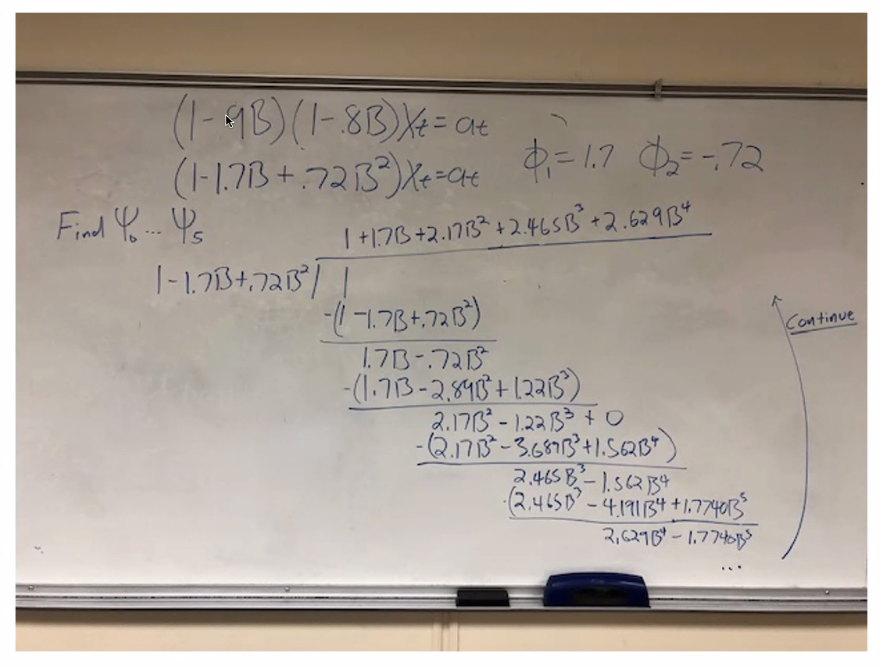 (1-.9B)(1-.8B)Xt=at
(1-1.7B+.72B²)Xt=at ϕ₁=1.7 ϕ₂=-.72
Find Ψ₀...Ψ₅
1+1.7B+2.17B²+2.465B³+2.629B⁴
1-1.7B+.72B² / 1
-(1-1.7B+.72B²)
Continue
1.7B-.72B²
-(1.7B-2.89B²+1.22B³)
2.17B²-1.22B³+0
-(2.17B²-3.689B³+1.562B⁴)
2.465B³-1.562B⁴
-(2.465B³-4.191B⁴+1.7740B⁵
2.629B⁴-1.7740B⁵
...